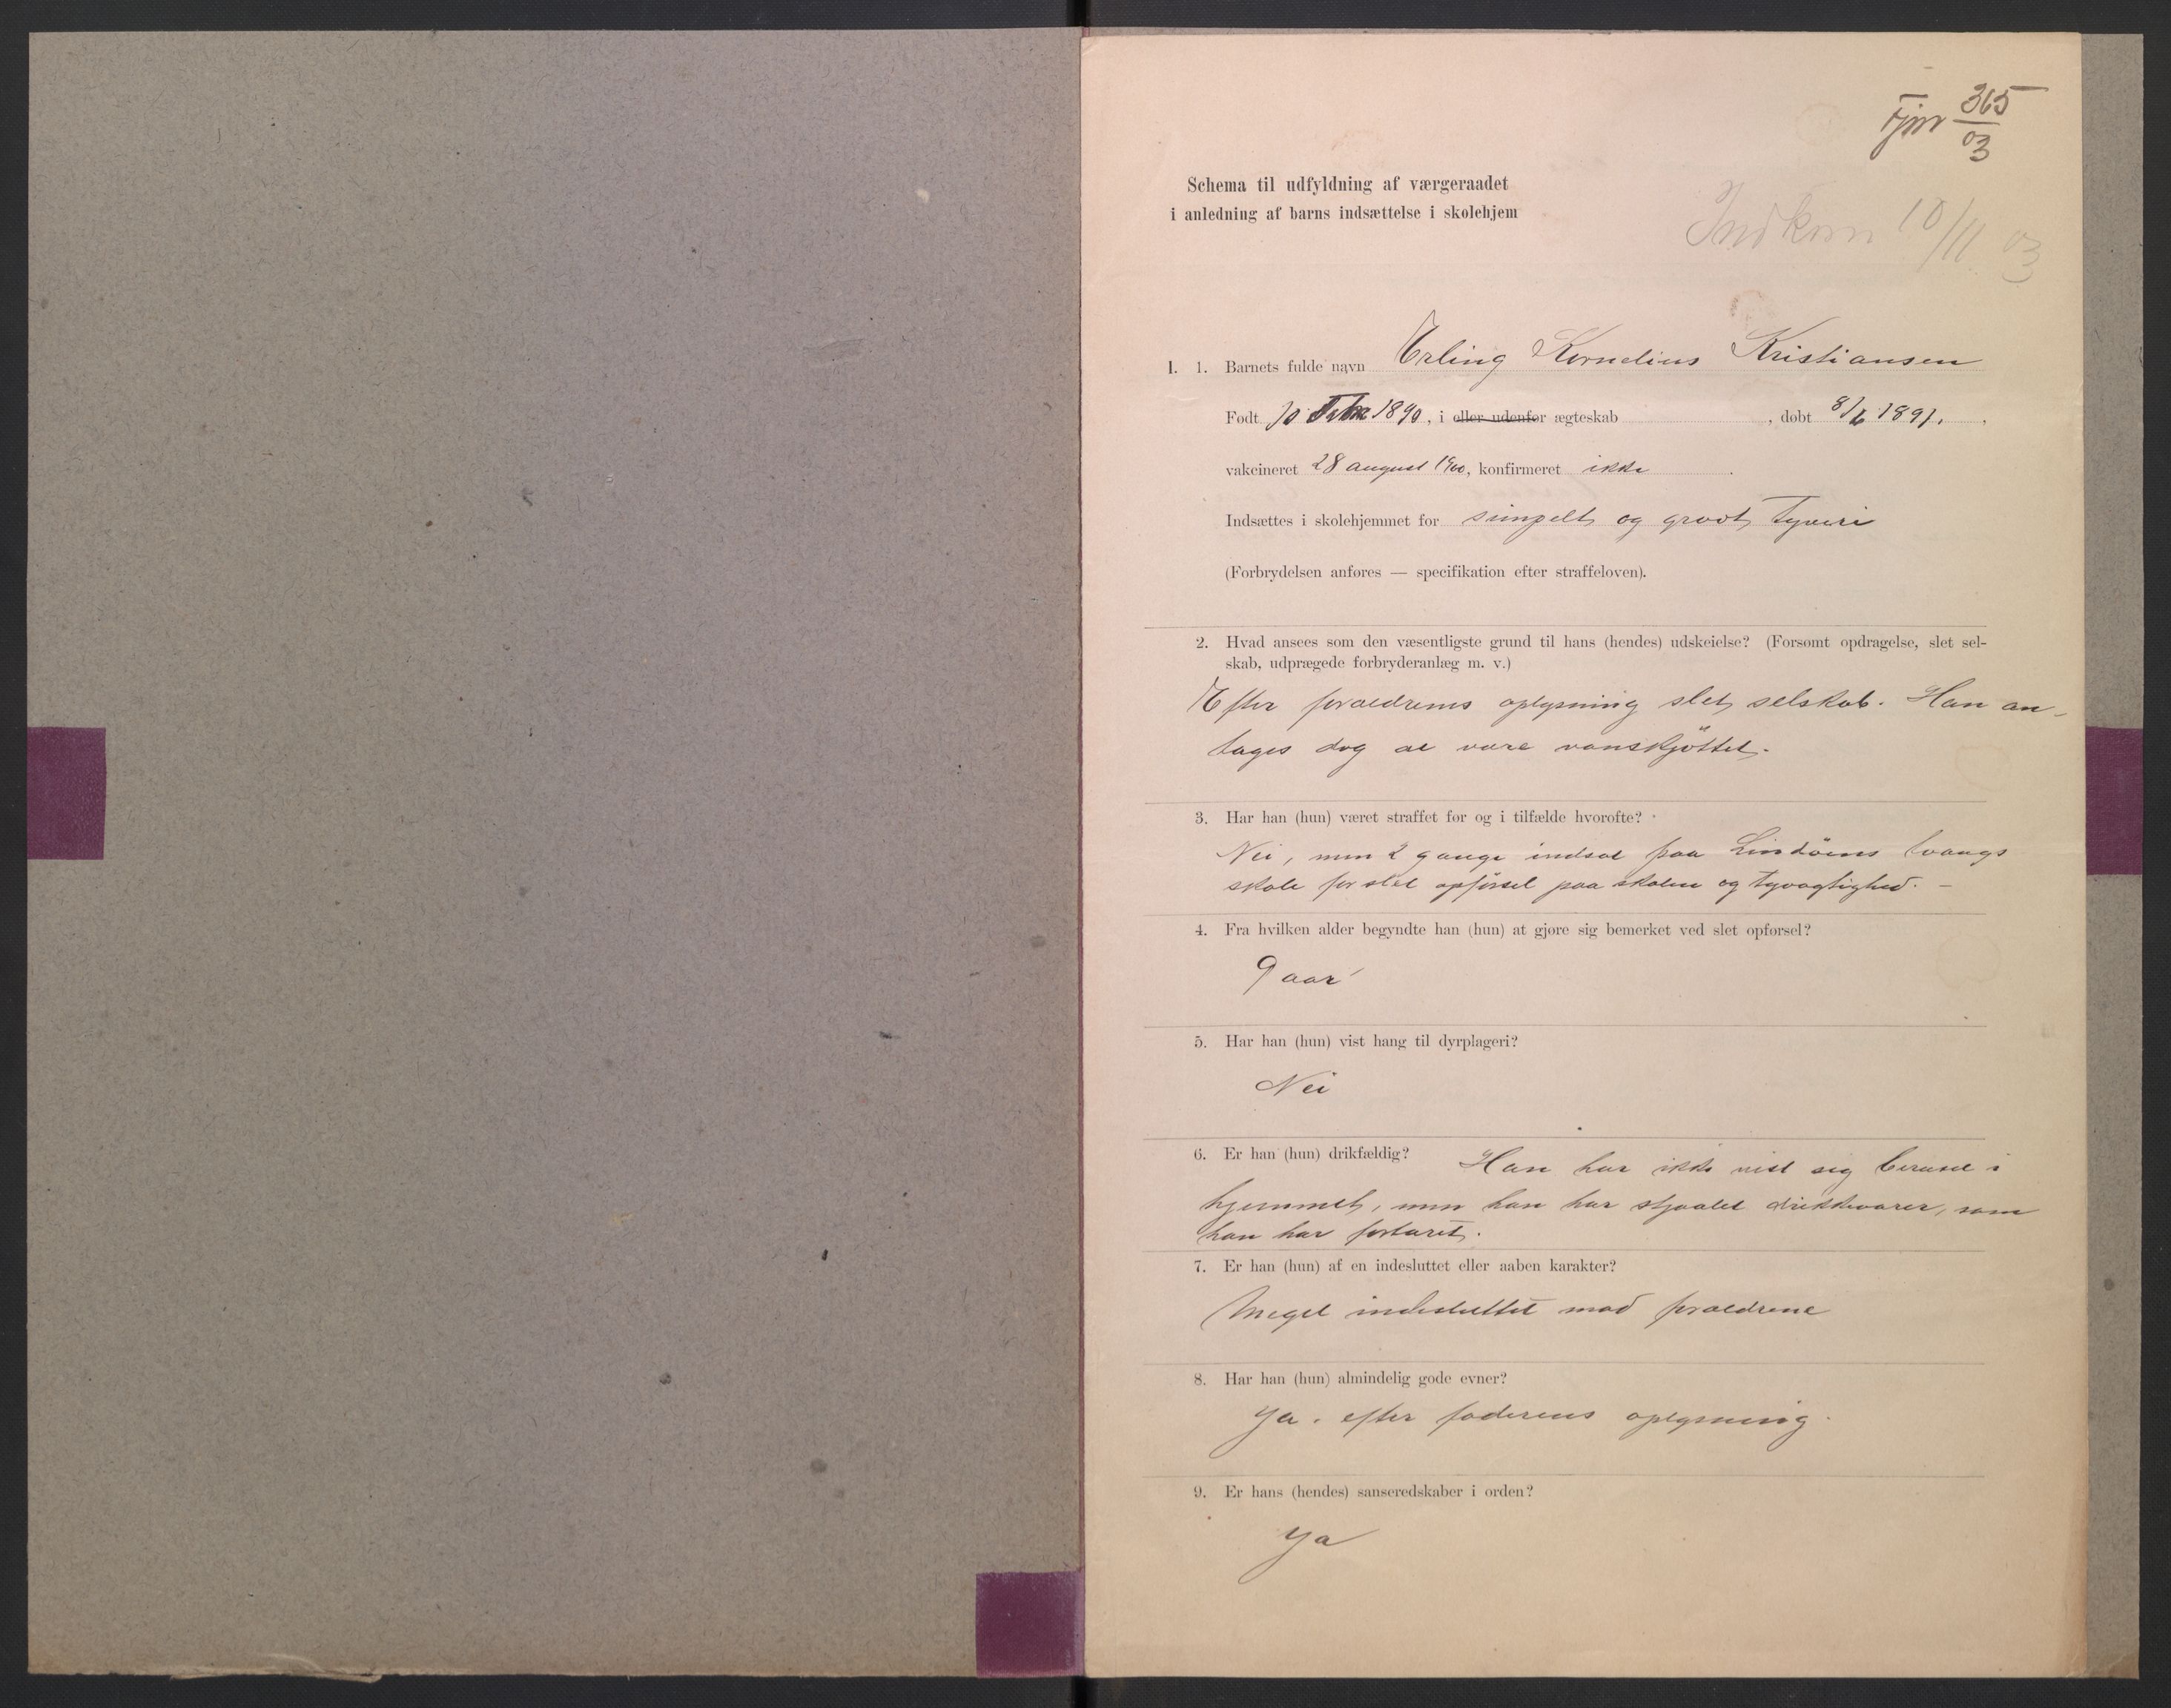 365
03
Schema til udfyldning af værgeraadet
i anledning af barns indsættelse i skolehjem
Indkom 10/11 03
I. 1. Barnets fulde navn Erling Kornelius Kristiansen
Født 10 1890, i eller udenfor ægteskab , døbt 8/6 1891.
vakcineret 28 august 1900, konfirmeret ikke .
Indsættes i skolehjemmet for simpelt og grovt tyveri
(Forbrydelsen anføres — specifikation efter straffeloven).
2. Hvad ansees som den væsentligste grund til hans (hendes) udskeielse? (Forsømt opdragelse, slet sel-
skab, udprægede forbryderanlæg m. v.)
Efter forældrenes oplysning slet selskab. Han an-
tages dog at være vanskjøttet.
3. Har han (hun) været straffet før og i tilfælde hvorofte?
Nei, men 2 gange indsat paa Lindöens tvangs
skole for slet opførsel paa skolen og tyvagtighed. -
4. Fra hvilken alder begyndte han (hun) at gjøre sig bemerket ved slet opførsel?
9 aar
5. Har han (hun) vist hang til dyrplageri?
Nei
6. Er han (hun) drikfældig? Han har ikke vist sig beruset i
hjemmet, men han har stjaalet drikkevarer, som
han har fortæret.
7. Er han (hun) af en indesluttet eller aaben karakter?
Meget indesluttet mod forældrene
8. Har han (hun) almindelig gode evner?
Ja. efter faderens oplysning.
9. Er hans (hendes) sanseredskaber i orden?
Ja